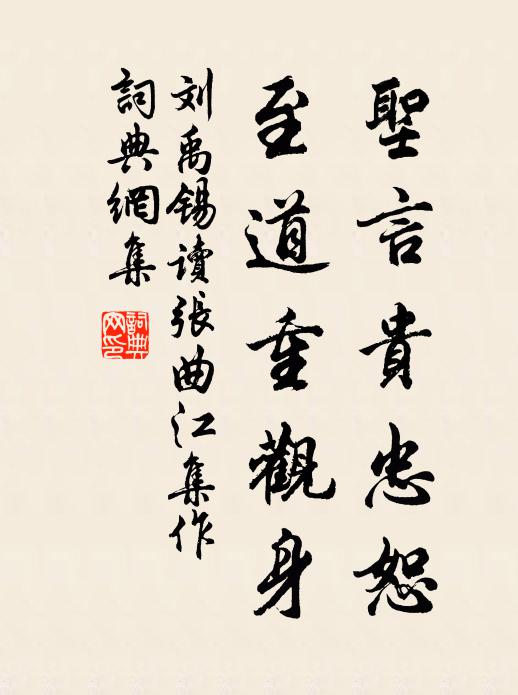 聖言貴忠恕
至道重觀身
刘禹锡读張曲江集作
詞典網集
詞典
网印